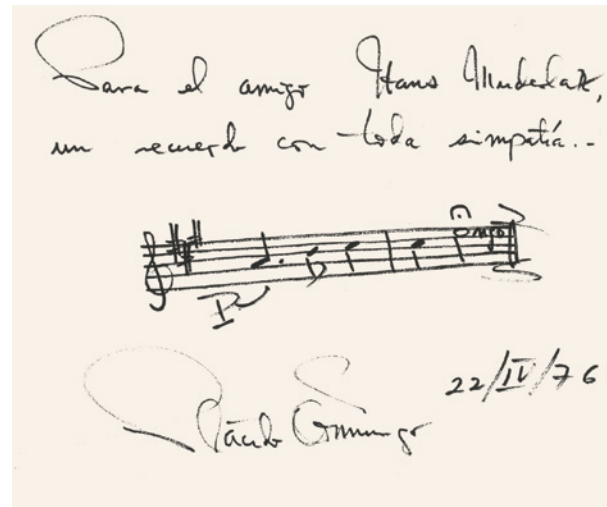 Para el amigo Hans
un recuerdo con toda simpatía..
Plácido Domingo
22/IV/76